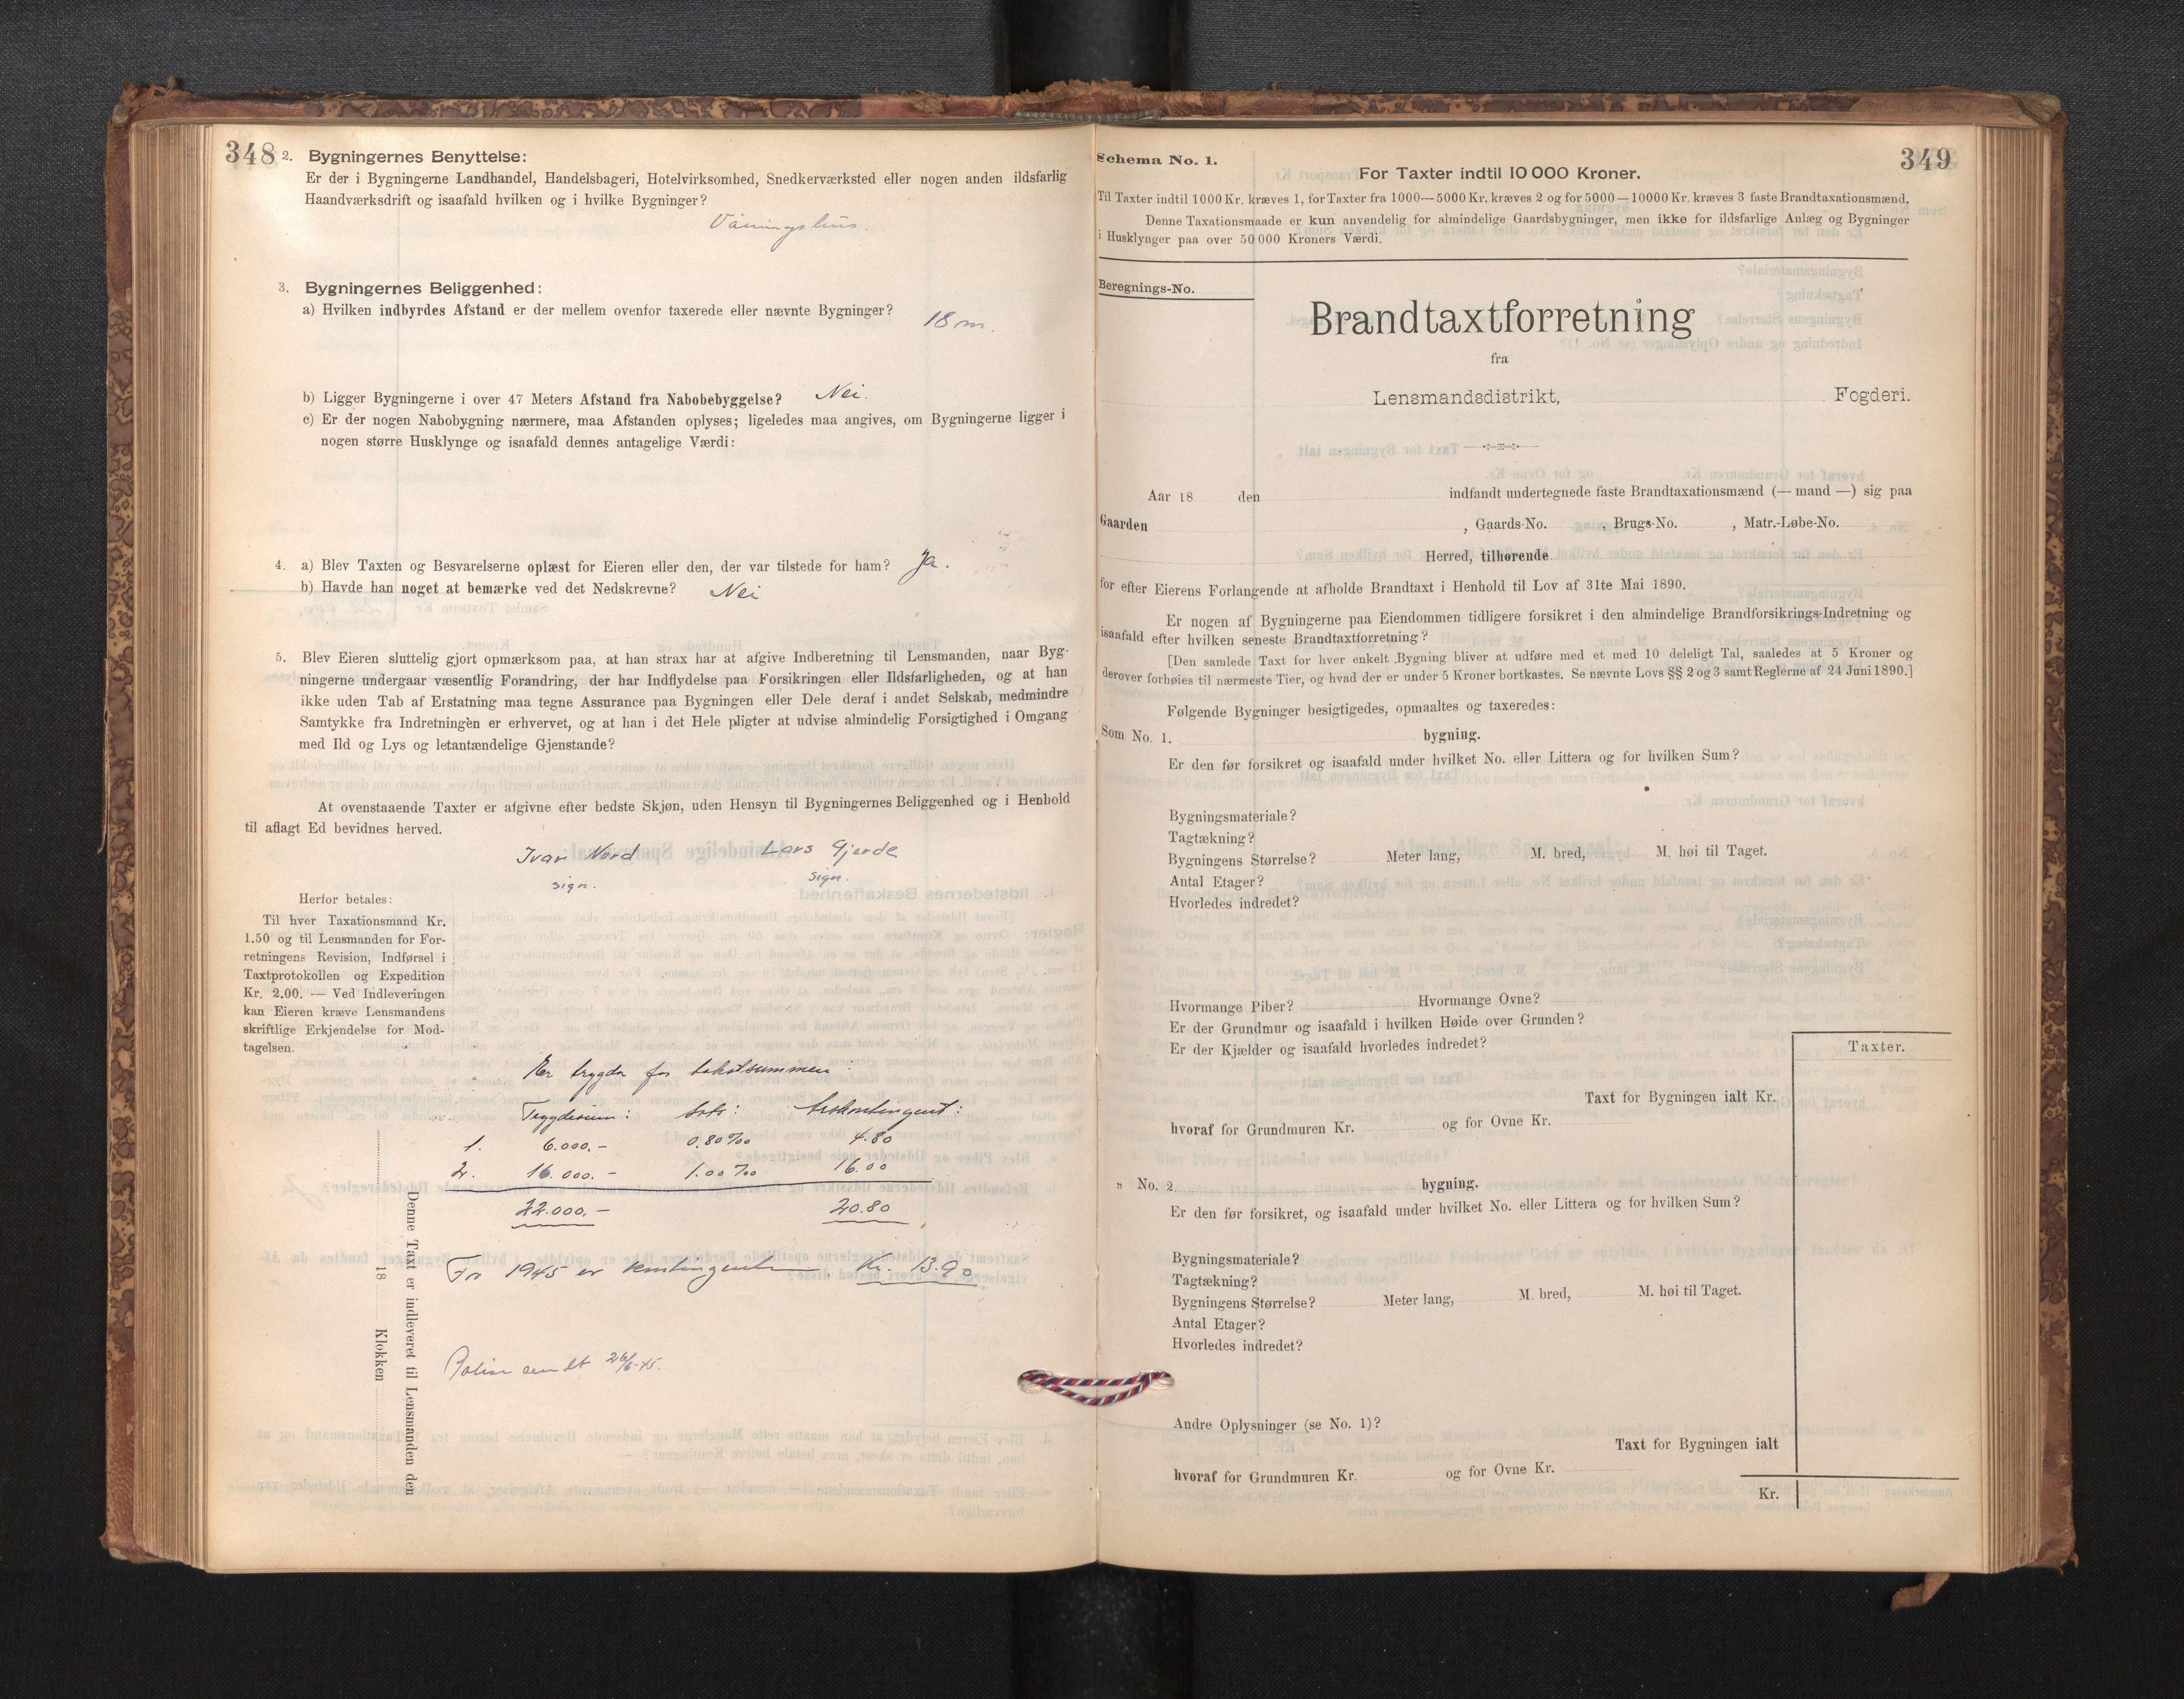 348
2. Bygningernes Benyttelse:
Er der i Bygningerne Landhandel, Handelsbageri, Hotelvirksomhed, Snedkerværksted eller nogen anden ildsfarlig
Haandværksdrift og isaafald hvilken og i hvilke Bygninger?
Våningshus.
3. Bygningernes Beliggenhed:
a) Hvilken indbyrdes Afstand er der mellem ovenfor taxerede eller nævnte Bygninger?
18 m.
b) Ligger Bygningerne i over 47 Meters Afstand fra Nabobebyggelse? Nei.
c) Er der nogen Nabobygning nærmere, maa Afstanden oplyses; ligeledes maa angives, om Bygningerne ligger i
nogen større Husklynge og isaafald dennes antagelige Værdi:
4. a) Blev Taxten og Besvarelserne oplæst for Eieren eller den, der var tilstede for ham? Ja.
b) Havde han noget at bemærke ved det Nedskrevne? Nei
5. Blev Eieren sluttelig gjort opmærksom paa, at han strax har at afgive Indberetning til Lensmanden, naar Byg-
ningerne undergaar væsentlig Forandring, der har Indflydelse paa Forsikringen eller Ildsfarligheden, og at han
ikke uden Tab af Erstatning maa tegne Assurance paa Bygningen eller Dele deraf i andet Selskab, medmindre
Samtykke fra Indretningen er erhvervet, og at han i det Hele pligter at udvise almindelig Forsigtighed i Omgang
med Ild og Lys og letantændelige Gjenstande?
At ovenstaaende Taxter er afgivne efter bedste Skjøn, uden Hensyn til Bygningernes Beliggenhed og i Henhold
til aflagt Ed bevidnes herved.
Ivar Nord Lars Gjerde
sign. sign.
Herfor betales:
Til hver Taxationsmand Kr.
1.50 og til Lensmanden for For-
retningens Revision, Indførsel i
Taxtprotokollen og Expedition
Kr. 2.00. — Ved Indleveringen
kan Eieren kræve Lensmandens
skriftlige Erkjendelse for Mod-
tagelsen.
Er trygda for takstsummen:
Trygdesum: Sats: Årskontingent:
1. 6.000.- 0.80‰ 4.80
2. 16.000.- 1.00‰ 16.00
22.000.- 20.80
For 1945 er kontingenten Kr. 13.90
Polise sendt 26/6-45.
Denne Taxt er indleveret til Lensmanden den
18 Klokken
349
Schema No. 1.
For Taxter indtil 10 000 Kroner.
Til Taxter indtil 1000 Kr. kræves 1, for Taxter fra 1000—5000 Kr. kræves 2 og for 5000—10000 Kr. kræves 3 faste Brandtaxationsmænd.
Denne Taxationsmaade er kun anvendelig for almindelige Gaardsbygninger, men ikke for ildsfarlige Anlæg og Bygninger
i Husklynger paa over 50 000 Kroners Værdi.
Beregnings-No.
Brandtaxtforretning
fra
Lensmandsdistrikt, Fogderi.
Aar 18 den indfandt undertegnede faste Brandtaxationsmænd (— mand —) sig paa
Gaarden , Gaards-No. , Brugs-No. , Matr.-Løbe-No.
Herred, tilhørende
for efter Eierens Forlangende at afholde Brandtaxt i Henhold til Lov af 31te Mai 1890.
Er nogen af Bygningerne paa Eiendommen tidligere forsikret i den almindelige Brandforsikrings-Indretning og
isaafald efter hvilken seneste Brandtaxtforretning?
[Den samlede Taxt for hver enkelt Bygning bliver at udføre med et med 10 deleligt Tal, saaledes at 5 Kroner og
derover forhøies til nærmeste Tier, og hvad der er under 5 Kroner bortkastes. Se nævnte Lovs §§ 2 og 3 samt Reglerne af 24 Juni 1890.]
Følgende Bygninger besigtigedes, opmaaltes og taxeredes:
Som No. 1. bygning.
Er den før forsikret og isaafald under hvilket No. eller Littera og for hvilken Sum?
Bygningsmateriale?
Tagtækning?
Bygningens Størrelse? Meter lang, M. bred, M. høi til Taget.
Antal Etager?
Hvorledes indredet?
Hvormange Piber? Hvormange Ovne?
Er der Grundmur og isaafald i hvilken Høide over Grunden?
Er der Kjælder og isaafald hvorledes indredet?
Taxter.
Taxt for Bygningen ialt Kr.
hvoraf for Grundmuren Kr. og for Ovne Kr.
„ No. 2 bygning.
Er den før forsikret, og isaafald under hvilket No. eller Littera og for hvilken Sum?
Bygningsmateriale?
Tagtækning?
Bygningens Størrelse? Meter lang, M. bred, M. høi til Taget.
Antal Etager?
Hvorledes indredet?
Andre Oplysninger (se No. 1)?
Taxt for Bygningen ialt
hvoraf for Grundmuren Kr. og for Ovne Kr.
Kr.